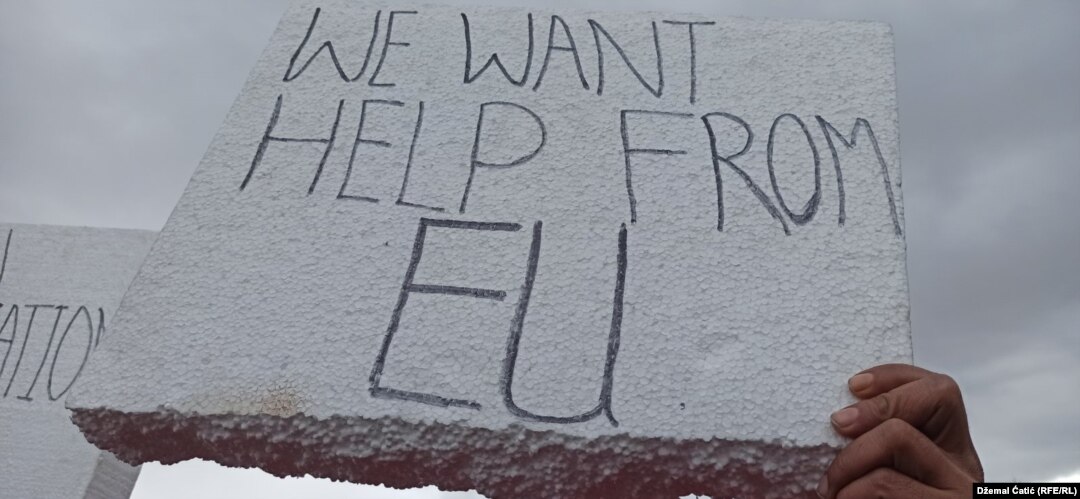 WE WANT
HELP FROM
EU
Džemal Ćatić (RFE/RL)